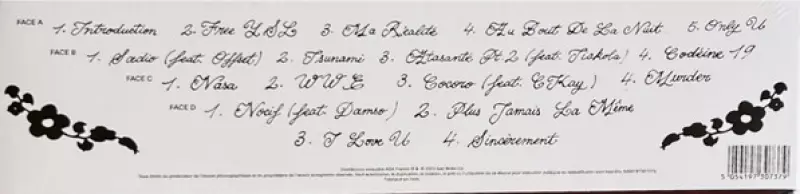 FACE A 1. Introduction 2. Free YSL 3. Ma Réalité 4. Au Bout De La Nuit 5. Only U
FACE B 1. Sadio (feat. Offset) 2. Tsunami 3. Atasanté Pt.2 (feat. Tiakola) 4. Codéine 19
FACE C 1. Nasa 2. WWE 3. Cocoro (feat. CKay) 4. Murder
FACE D 1. Nocif (feat. Damso) 2. Plus Jamais La Même
3. I Love U 4. Sincèrement
5 054197 307379